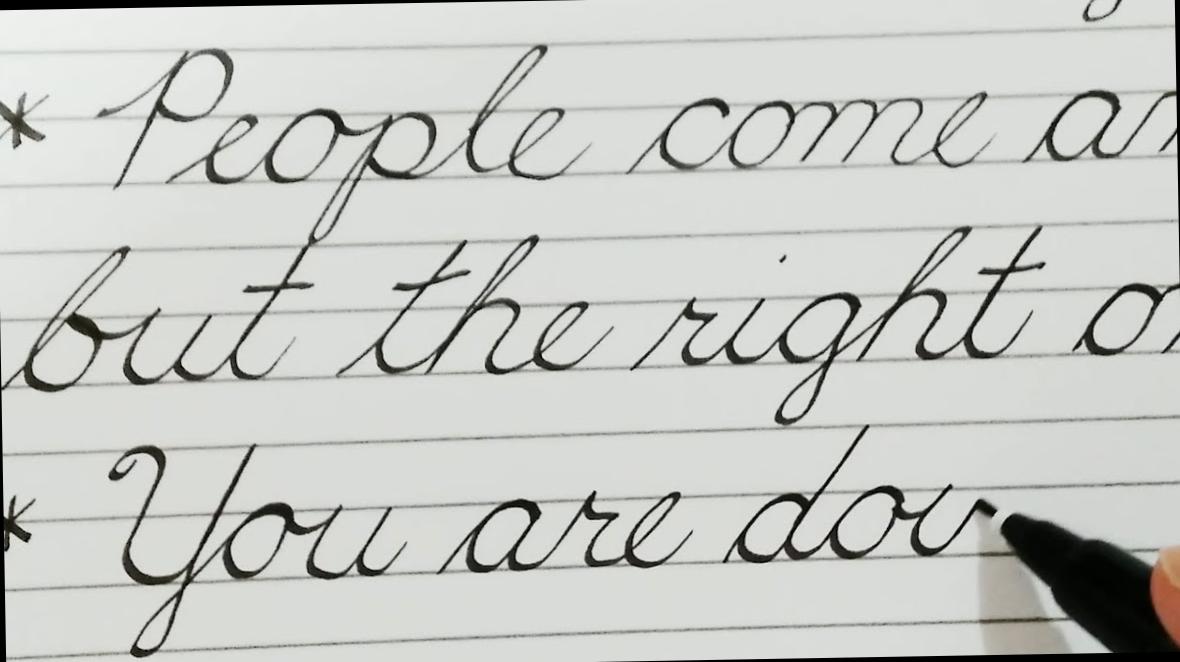 * People come an
but the right on
* You are dou